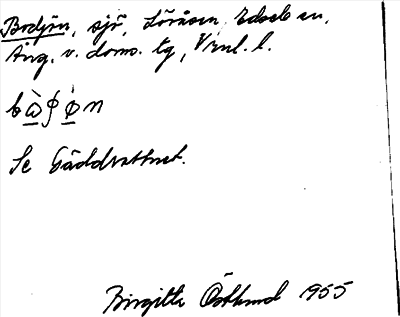 Bodjön, sjö, Loråsen, Edseb sn,
Ång. v. doms. tg, Vrml. l.
bὼʃo̱n
Se Gäddvattnet.
Birgitta Östlund 1955